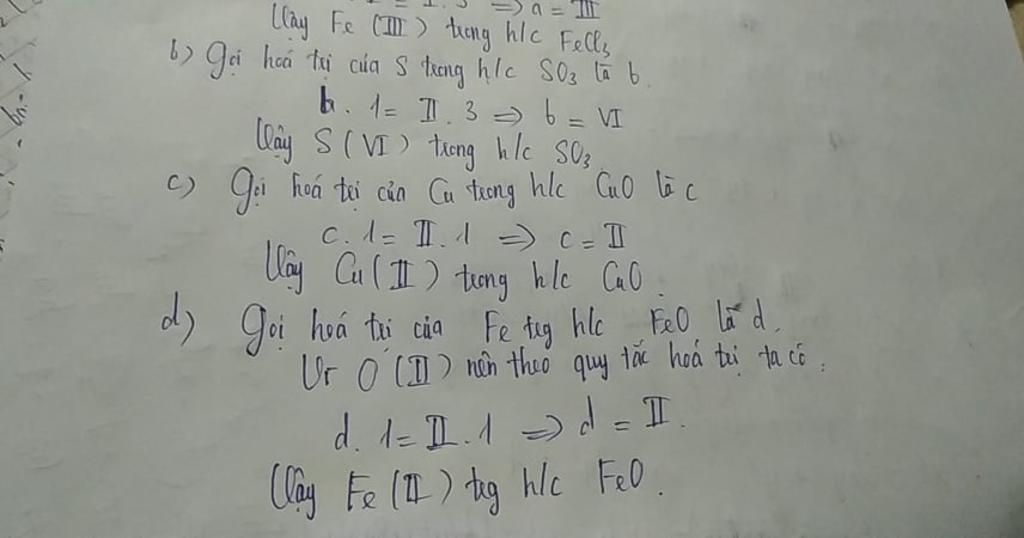 I. 3 => a = III
Vậy Fe (III) trong h/c FeCl3
b) Gọi hoá trị của S trong h/c SO3 là b.
b. 1 = II. 3 => b = VI
Vậy S (VI) trong h/c SO3
c) Gọi hoá trị của Cu trong h/c CuO là c
c. 1 = II. 1 => c = II
Vậy Cu (II) trong h/c CuO.
d) Gọi hoá trị của Fe trg h/c FeO là d.
Vì O (II) nên theo quy tắc hoá trị ta có:
d. 1 = II. 1 => d = II.
Vậy Fe (II) trg h/c FeO.